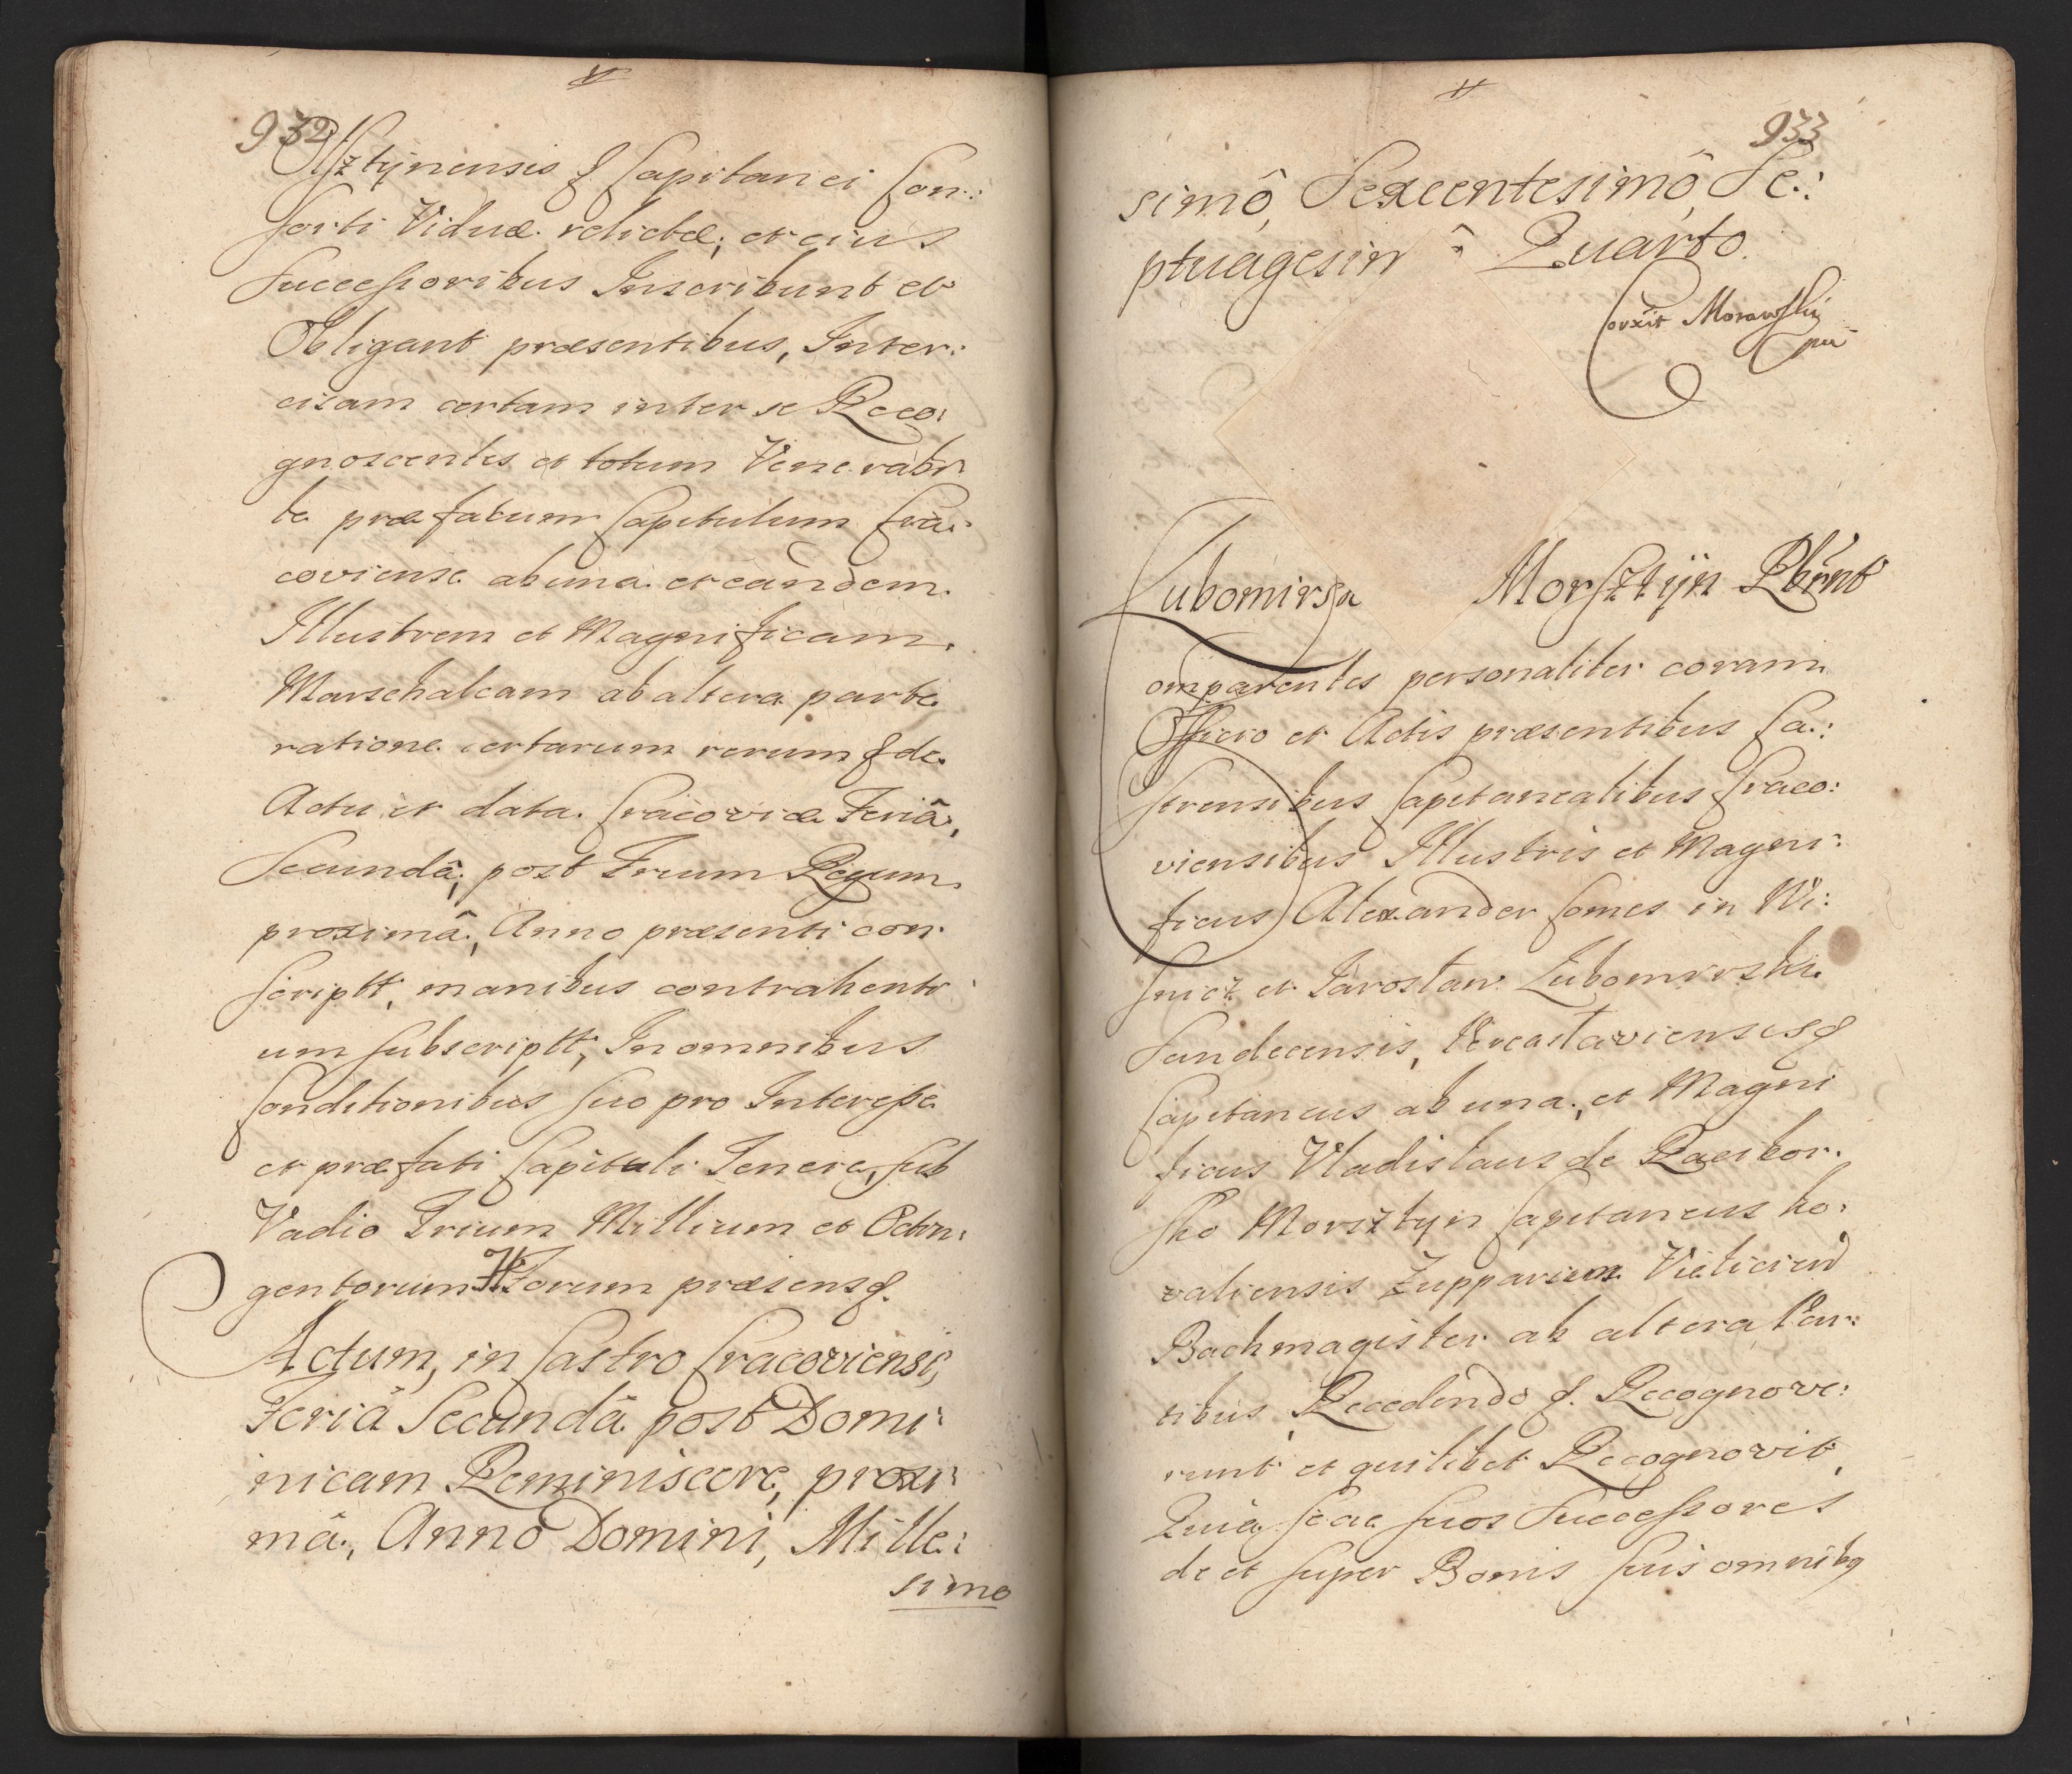 932
Olsztynensis q Capitanei Con:
sorti Viduæ relictæ, et eius
Successoribus Inscribunt et
Obligant præsentibus, Inter:
cisam certam inter se Reco:
gnoscentes et totum Venerabi
le præfatum Capitulum Cra:
coviense ab una et eandem
Illustrem et Magnificam
Marschalcam ab altera parte
ratione certarum rerum q de
Actu et data Cracoviæ Feriâ,
Secundâ, post Trium Regum
proximâ, Anno præsenti con
scriptt, manibus contrahenti
um subscriptt, In omnibus
Conditionibus suo pro Interesse
et præfati Capituli Tenere, sub
Vadio Trium Millium et Octin:
gentorum florum præsens q.
Actum, in Castro Cracoviensi,
Feriâ Secundâ post Domi:
nicam Reminiscere, proxi:
mâ, Anno Domini, Mille:
simo
933
simô, Sexcentesimô, Se:
ptuagesim ô Quarto.
Corxit Morawski
mp
Lubomirski Morsztyn Rbrnt
Comparentes personaliter coram
Officio et Actis præsentibus Ca:
strensibus Capitanealibus Craco:
viensibus Illustris et Magni:
ficus Alexander Comes in Wi:
snicz et Jarosław Lubomirski
Sandecensis, Pereasłaviensisq
Capitaneus ab una, et Magni
ficus Vladislaus de Racibor.
sko Morsztyn Capitaneus ko:
valiensis Zupparum Vielicien
Bachmagister ab altera Par:
tibus, Recedendo q. Recognove:
runt et quilibet Recognovit,
Quia se ac suos Successores
de et super Bonis suis omnibq